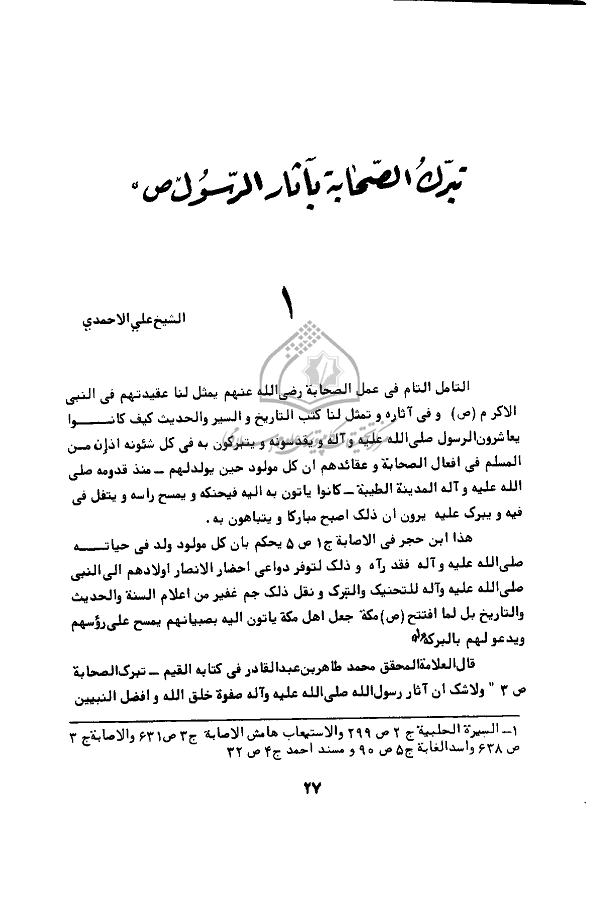 تبرّك الصّحابة بآثار الرّسول «ص»
١
الشيخ علي الاحمدي
التامل التام فى عمل الصحابة رضي الله عنهم يمثل لنا عقيدتهم فى النبى
الاكرم (ص) و فى آثاره و تمثل لنا كتب التاريخ و السير والحديث كيف كانــوا
يعاشرون الرسول صلى الله عليه و آله و يقدسونه و يتبركون به فى كل شئونه اذان من
المسلم فى افعال الصحابة و عقائدهم ان كل مولود حين يولد لهم ــ منذ قدومه صلى
الله عليه و آله المدينة الطيبة ــ كانوا ياتون به اليه فيحنكه و يمسح راسه و يتفل فى
فيه و يبرك عليه يرون ان ذلك اصبح مباركا و يتباهون به .
هذا ابن حجر فى الاصابة ج١ ص ٥ يحكم بان كل مولود ولد فى حياتــه
صلى الله عليه و آله فقد رآه و ذلك لتوفر دواعى احضار الانصار اولادهم الى النبى
صلى الله عليه وآله للتحنيك والتبرك و نقل ذلك جم غفير من اعلام السنة والحديث
والتاريخ بل لما افتتح (ص) مكة جعل اهل مكة ياتون اليه بصبيانهم يمسح على رؤسهم
ويدعو لهم بالبركة(١)
قال العلامة المحقق محمد طاهر بن عبدالقادر فى كتابه القيم ــ تبرك الصحابة
ص ٣ " ولاشك أن آثار رسول الله صلى الله عليه وآله صفوة خلق الله و افضل النبيين
١ــ السيرة الحلبية ج ٢ ص ٢٩٩ والاستيعاب هامش الاصابة ج٣ ص ٦٣١ والاصابة ج ٣
ص ٦٣٨ واسدالغابة ج٥ ص ٩٠ و مسند احمد ج۴ ص ٣٢
٢٧